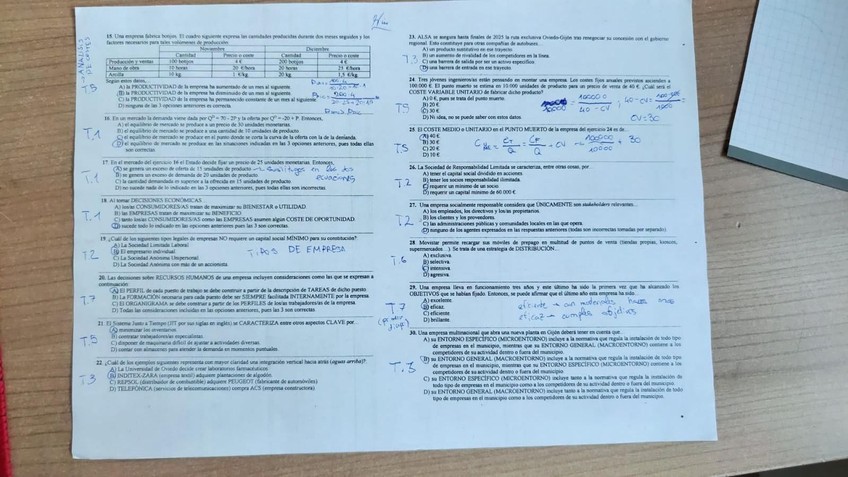 15. Una empresa fabrica botijos. El cuadro siguiente expresa las cantidades producidas durante dos meses seguidos y los
factores necesarios para tales volúmenes de producción:
Noviembre Diciembre
Cantidad Precio o coste Cantidad Precio o coste
Producción y ventas 100 botijos 4 € 200 botijos 4 €
Mano de obra 10 horas 20 €/hora 20 horas 25 €/hora
Arcilla 10 kg 1 €/kg 20 kg 1,5 €/kg
Según estos datos...
T.5
A) la PRODUCTIVIDAD de la empresa ha aumentado de un mes al siguiente.
B) la PRODUCTIVIDAD de la empresa ha disminuido de un mes al siguiente.
C) la PRODUCTIVIDAD de la empresa ha permanecido constante de un mes al siguiente.
D) ninguna de las 3 opciones anteriores es correcta.
16. En un mercado la demanda viene dada por Qd = 70 - 2P y la oferta por Qs = -20 + P. Entonces,
T.1
A) el equilibrio de mercado se produce a un precio de 30 unidades monetarias.
B) el equilibrio de mercado se produce a una cantidad de 10 unidades de producto
C) el equilibrio de mercado se produce en el punto donde se corta la curva de la oferta con la de la demanda.
D) el equilibrio de mercado se produce en las situaciones indicadas en las 3 opciones anteriores, pues todas ellas
son correctas.
17. En el mercado del ejercicio 16 el Estado decide fijar un precio de 25 unidades monetarias. Entonces,
T.1
A) se genera un exceso de oferta de 15 unidades de producto
B) se genera un exceso de demanda de 20 unidades de producto
ecuaciones
C) la cantidad demandada es superior a la ofrecida en 15 unidades de producto
D) no sucede nada de lo indicado en las 3 opciones anteriores, pues todas ellas son incorrectas
18. Al tomar DECISIONES ECONÓMICAS
T.1
A) los/as CONSUMIDORES/AS tratan de maximizar su BIENESTAR o UTILIDAD.
B) las EMPRESAS tratan de maximizar su BENEFICIO
C) tanto los/as CONSUMIDORES/AS como las EMPRESAS asumen algún COSTE DE OPORTUNIDAD.
D) sucede todo lo indicado en las opciones anteriores pues las 3 son correctas.
19. ¿Cuál de los siguientes tipos legales de empresas NO requiere un capital social MÍNIMO para su constitución?
T.2
A) La Sociedad Limitada Laboral
B) El empresario individual
TIPOS DE EMPRESA
C) La Sociedad Anónima Unipersonal
D) La Sociedad Anónima con más de un accionista
20. Las decisiones sobre RECURSOS HUMANOS de una empresa incluyen consideraciones como las que se expresan a
continuación:
T.7
A) El PERFIL de cada puesto de trabajo se debe construir a partir de la descripción de TAREAS de dicho puesto.
B) La FORMACIÓN necesaria para cada puesto debe ser SIEMPRE facilitada INTERNAMENTE por la empresa.
C) El ORGANIGRAMA se debe construir a partir de los PERFILES de los/as trabajadores/as de la empresa.
D) Todas las consideraciones incluidas en las opciones anteriores, pues las 3 son correctas
21. El Sistema Justo a Tiempo (JIT por sus siglas en inglés) se CARACTERIZA entre otros aspectos CLAVE por...
T.5
A) minimizar los inventarios
B) contratar trabajadores/as especialistas
C) disponer de maquinaria difícil de ajustar a actividades diversas.
D) contar con almacenes para atender la demanda en momentos puntuales.
22. ¿Cuál de los ejemplos siguientes representa con mayor claridad una integración vertical hacia atrás (aguas arriba)?
T.3
A) La Universidad de Oviedo decide crear laboratorios farmacéuticos
B) INDITEX-ZARA (empresa textil) adquiere plantaciones de algodón
C) REPSOL (distribuidor de combustible) adquiere PEUGEOT (fabricante de automóviles)
D) TELEFÓNICA (servicios de telecomunicaciones) compra ACS (empresa constructora).
23. ALSA se asegura hasta finales de 2025 la ruta exclusiva Oviedo-Gijón tras renegociar su concesión con el gobierno
regional. Esto constituye para otras compañías de autobuses...
T.3
A) un producto sustitutivo en ese trayecto.
B) un aumento de rivalidad de los competidores en la línea.
C) una barrera de salida por ser un activo específico.
D) una barrera de entrada en ese trayecto.
24. Tres jóvenes ingenieros/as están pensando en montar una empresa. Los costes fijos anuales previstos ascienden a
100.000 €. El punto muerto se estima en 10.000 unidades de producto para un precio de venta de 40 €. ¿Cuál será el
COSTE VARIABLE UNITARIO de fabricar dicho producto?
T.5
A) 0 €, pues se trata del punto muerto.
B) 20 €
C) 30 €
D) Ni idea, no se puede saber con estos datos
CV=30
25. El COSTE MEDIO o UNITARIO en el PUNTO MUERTO de la empresa del ejercicio 24 es de...
T.5
A) 40 €
B) 30 €
C) 20 €
D) 10 €
26. La Sociedad de Responsabilidad Limitada se caracteriza, entre otras cosas, por...
T.2
A) tener el capital social dividido en acciones
B) tener los socios responsabilidad ilimitada.
C) requerir un mínimo de un socio.
D) requerir un capital mínimo de 60.000 €.
27. Una empresa socialmente responsable considera que ÚNICAMENTE son stakeholders relevantes...
T.2
A) los empleados, los directivos y los/as propietarios.
B) los clientes y los proveedores.
C) las administraciones públicas y comunidades locales en las que opera.
D) ninguno de los agentes expresados en las respuestas anteriores (todas son incorrectas tomadas por separado).
28. Movistar permite recargar sus móviles de prepago en multitud de puntos de venta (tiendas propias, kioscos,
supermercados...). Se trata de una estrategia de DISTRIBUCIÓN...
T.6
A) exclusiva.
B) selectiva.
C) intensiva.
D) agresiva.
29. Una empresa lleva en funcionamiento tres años y este último ha sido la primera vez que ha alcanzado los
OBJETIVOS que se habían fijado. Entonces, se puede afirmar que el último año esta empresa ha sido...
A) excelente
B) eficaz.
C) eficiente
D) brillante.
30. Una empresa multinacional que abra una nueva planta en Gijón deberá tener en cuenta que...
T.3
A) su ENTORNO ESPECÍFICO (MICROENTORNO) incluye a la normativa que regula la instalación de todo tipo
de empresas en el municipio, mientras que su ENTORNO GENERAL (MACROENTORNO) contiene a los
competidores de su actividad dentro o fuera del municipio.
B) su ENTORNO GENERAL (MACROENTORNO) incluye a la normativa que regula la instalación de todo tipo
de empresas en el municipio, mientras que su ENTORNO ESPECÍFICO (MICROENTORNO) contiene a los
competidores de su actividad dentro o fuera del municipio.
C) su ENTORNO ESPECÍFICO (MICROENTORNO) incluye tanto a la normativa que regula la instalación de
todo tipo de empresas en el municipio como a los competidores de su actividad dentro o fuera del municipio.
D) su ENTORNO GENERAL (MACROENTORNO) incluye tanto a la normativa que regula la instalación de todo
tipo de empresas en el municipio como a los competidores de su actividad dentro o fuera del municipio.